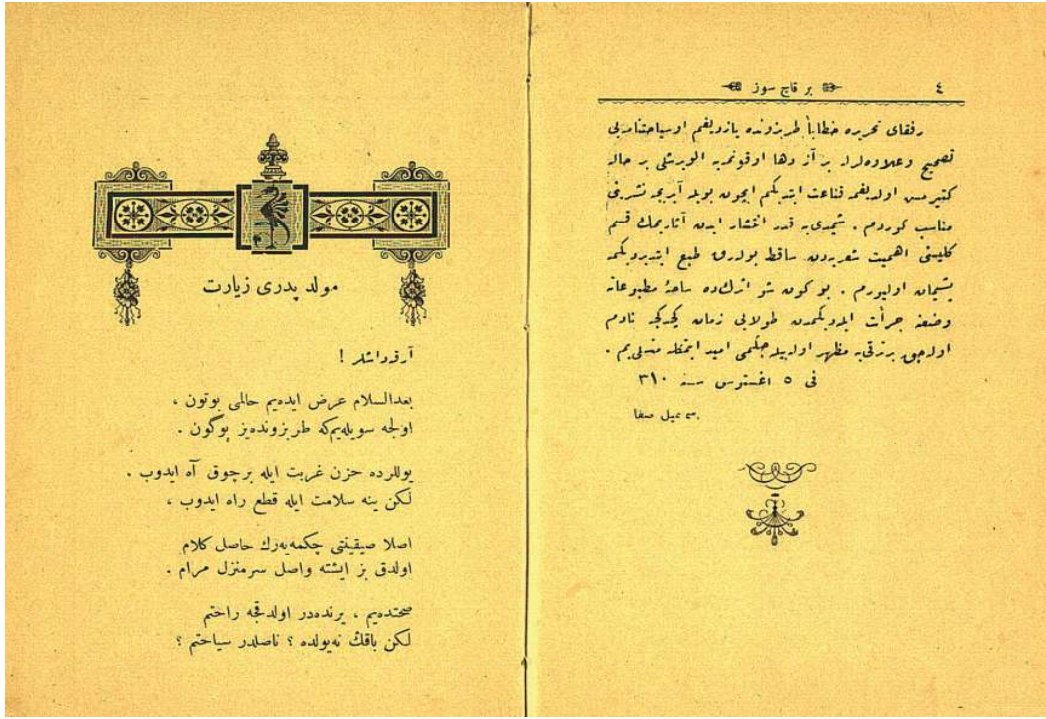 ٤
بر قاچ سوز
رفقای تحریره خطاباً طربزونده یازدیغم اوسیاحتنامه‌یی
تصحیح وعلاوه‌لرله بر آز دها اوقونمه‌یه الویریشلی بر حاله
كتیرمش اولدیغمه قناعت ایتدیكم ایچون بویله آیریجه نشرینی
مناسب كوردم . شیمدی‌یه قدر انتشار ایدن آثاریمك قسم
كلیسنی اهمیت شعریه‌دن ساقط بوله‌رق طبع ایتدیردیكمه
پشیمان اولیورم . بو كون شو اثرك‌ده ساحهٔ مطبوعاته
وضعنه جرأت ایله‌دیكمدن طولایی زمان كچدكجه نادم
اوله‌جق بر ترقی‌یه مظهر اوله‌بیله‌جكمی امید ایتمكله متسلی‌یم .
فی ٥ اغستوس سنه ٣١٠
اسمعیل صفا
مولد پدری زیارت
آرقداشلر !
بعدالسلام عرض ایده‌یم حالمی بوتون ،
اولجه سویله‌یم‌كه طربزونده‌یز بوگون .
یوللرده حزن غربت ایله برچوق آه ایدوب .
لكن ینه سلامت ایله قطع راه ایدوب ،
اصلا صیقینتی چكمه‌یه‌رك حاصل كلام
اولدق بز ایشته واصل سرمنزل مرام .
صحتده‌یم ، یرنده‌در اولدقجه راحتم
لكن باقڭ نه‌یولده ؟ ناصلدر سیاحتم ؟